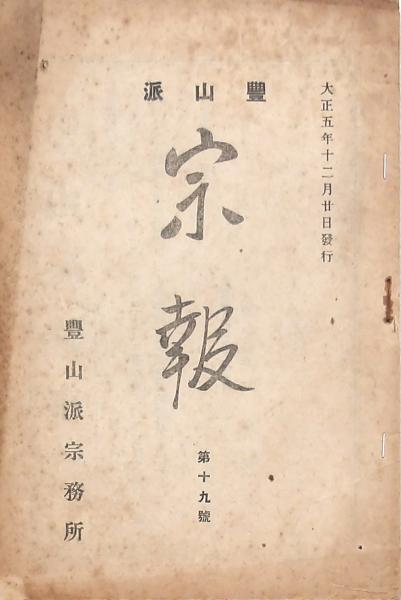 大正五年十二月廿日發行
豐山派
宗報
第十九號
豐山派宗務所